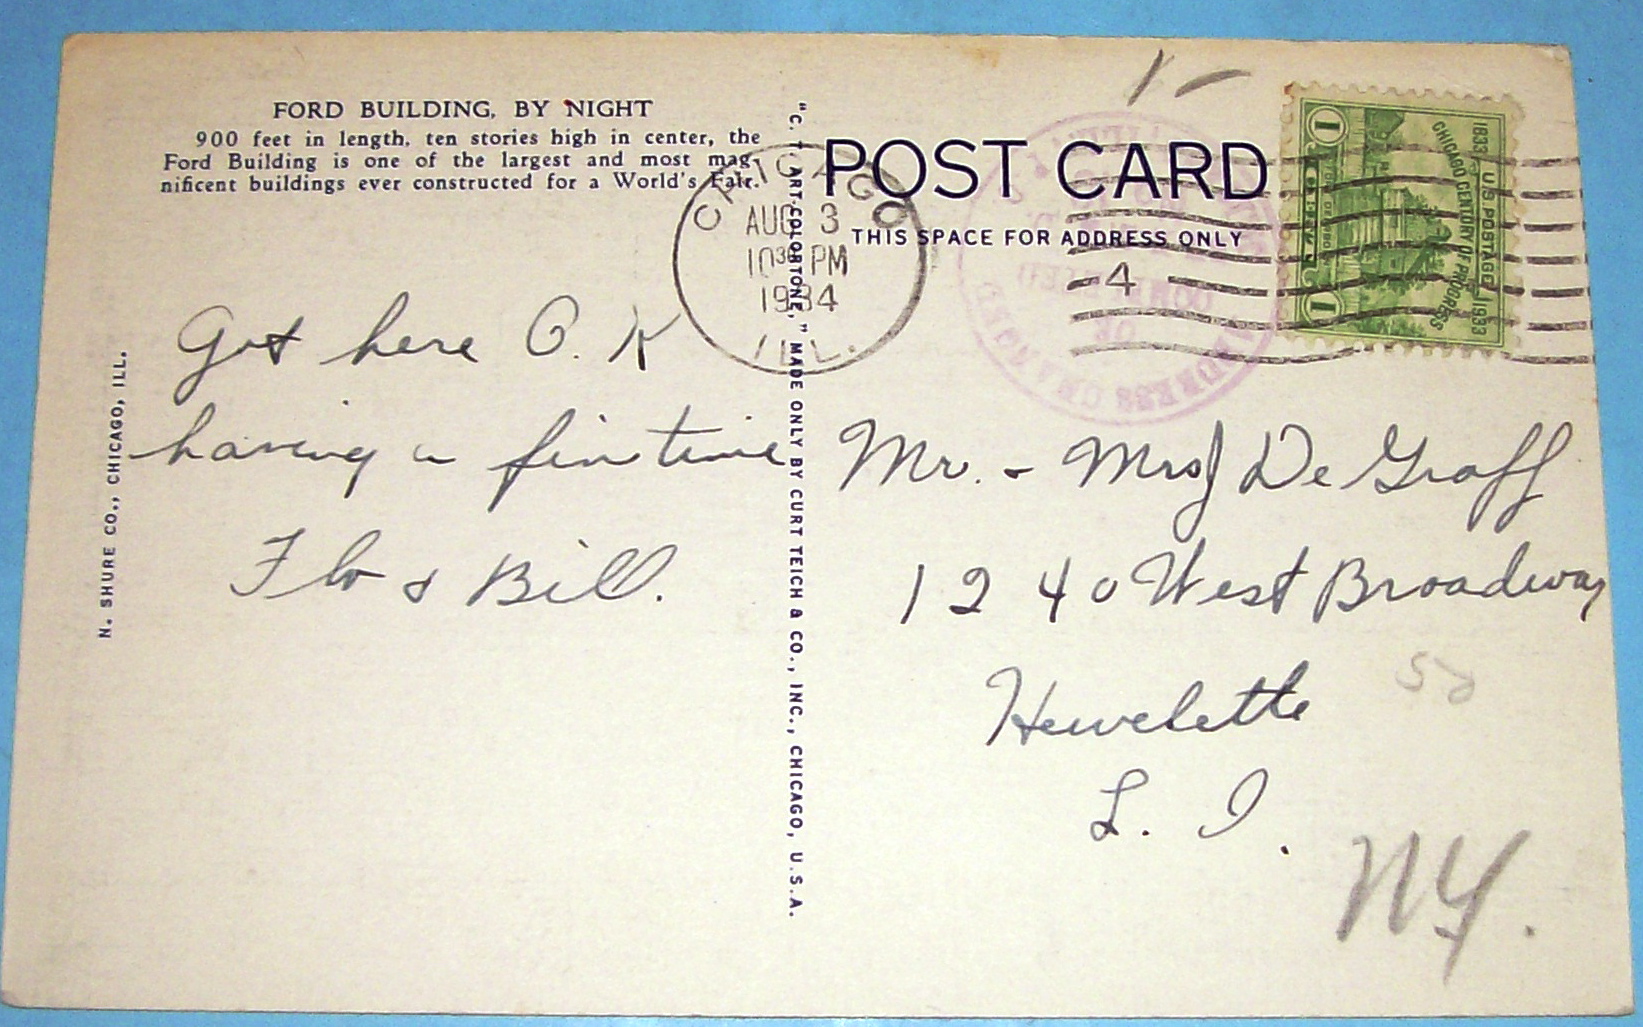 FORD BUILDING, BY NIGHT
900 feet in length, ten stories high in center, the
Ford Building is one of the largest and most mag-
nificent buildings ever constructed for a World's Fair.
N. SHURE CO., CHICAGO, ILL.
Got here O. K
having a fin time
Flo & Bill.
"C. T. ART-COLORTONE," MADE ONLY BY CURT TEICH & CO., INC., CHICAGO, U.S.A.
CHICAGO
AUG 3
10 30 PM
1934
ILL.
POST CARD
THIS SPACE FOR ADDRESS ONLY
4
1
1
U S POSTAGE
1833 1933
CHICAGO CENTURY OF PROGRESS
OF
ADDRESS CHANGED
Mr. - Mrs J De Graff
1240 West Broadway
Hewelette
L. I.
NY.